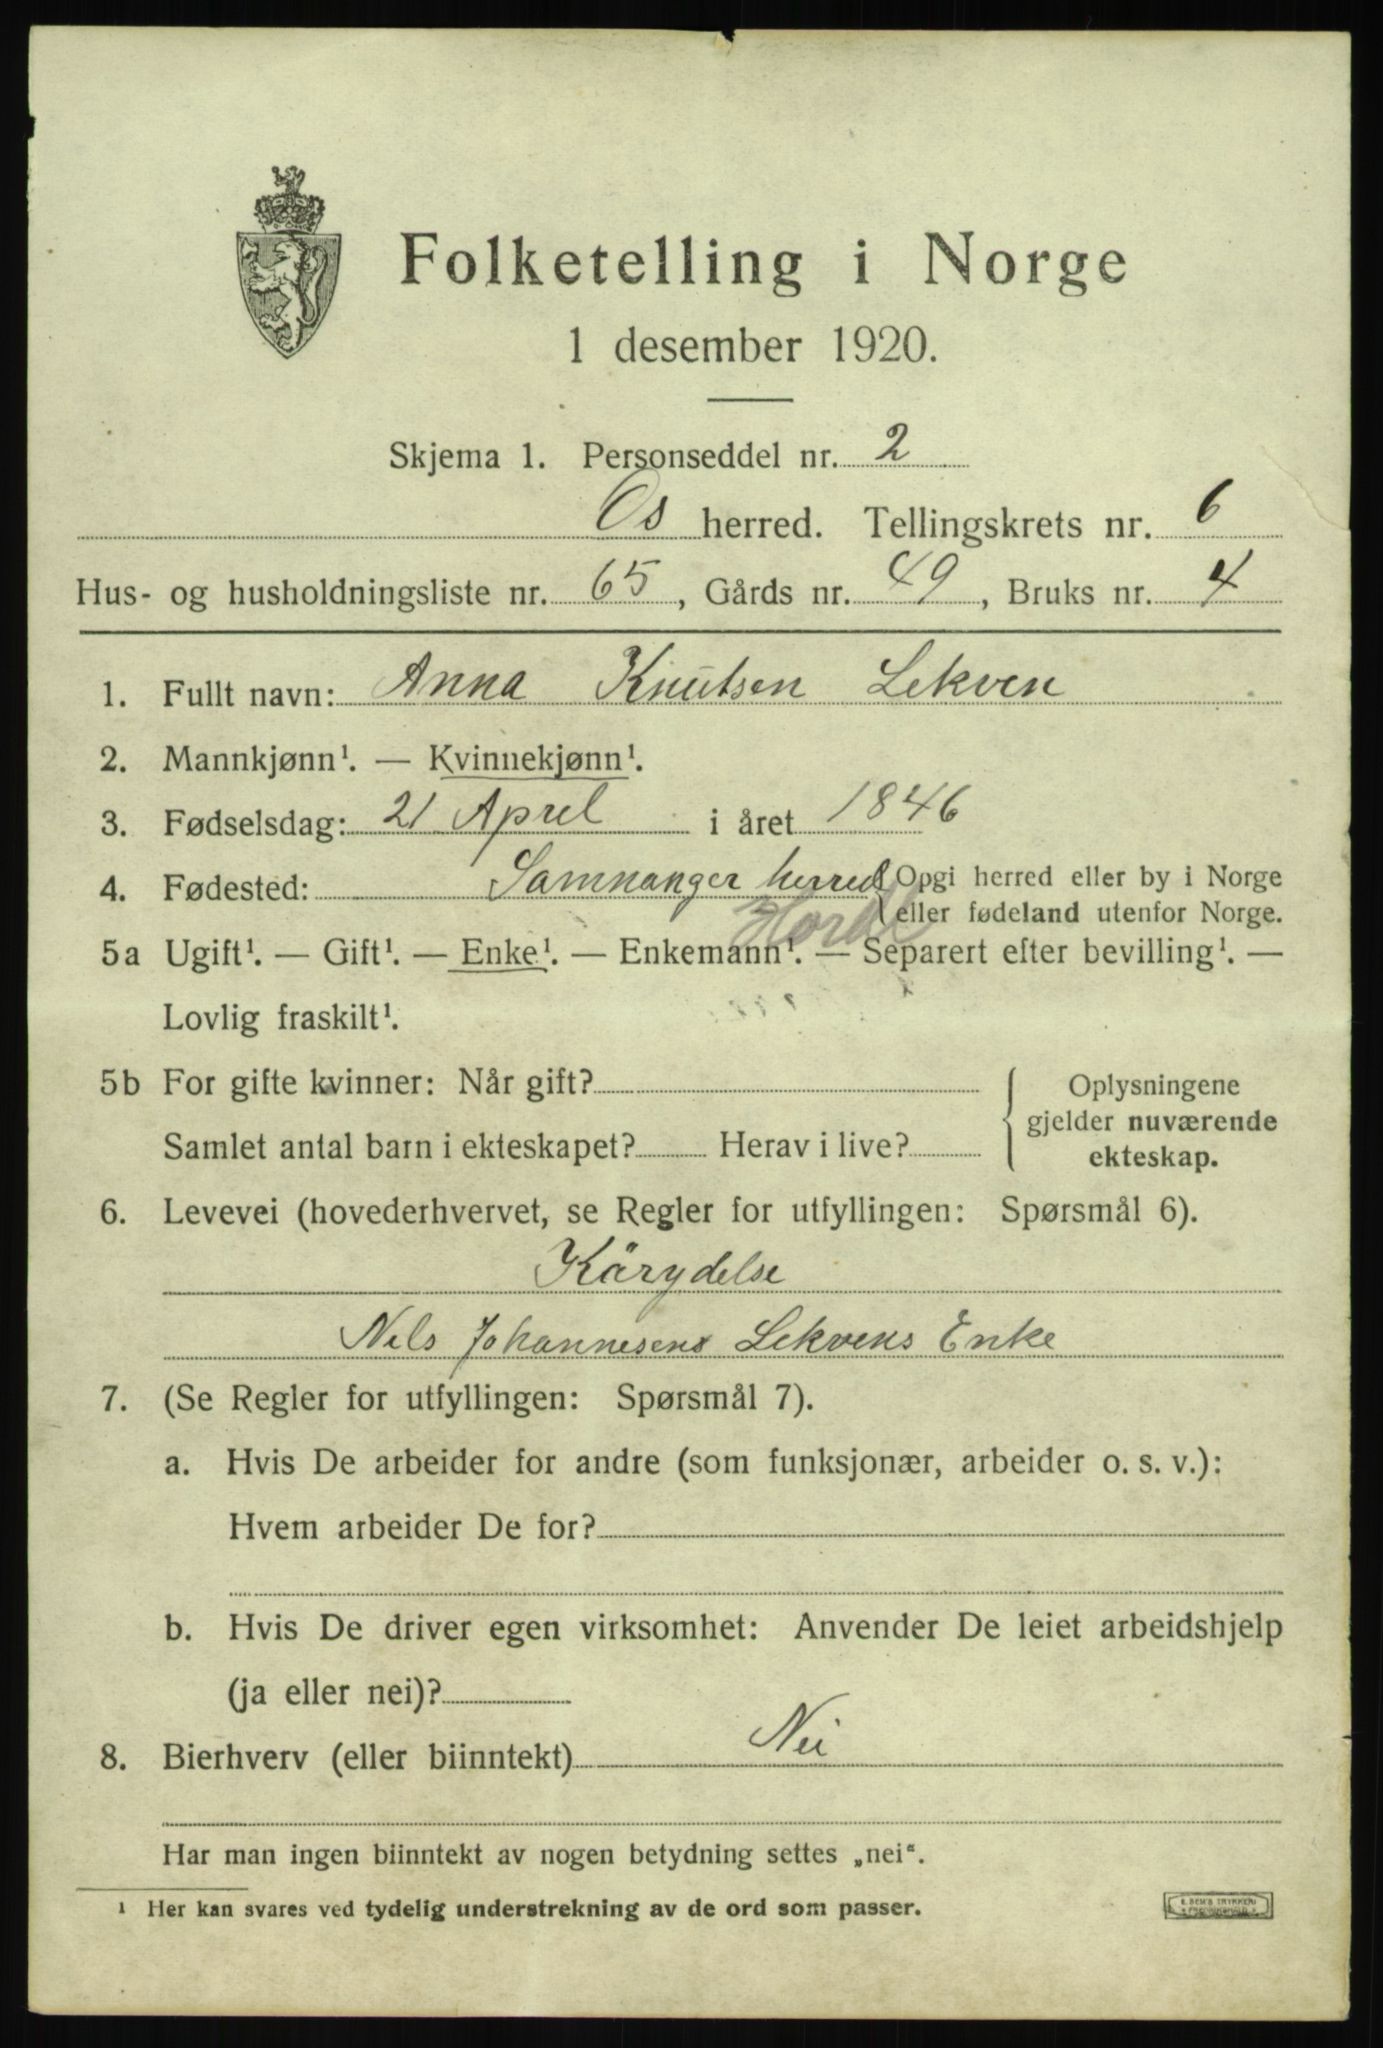 Folketelling i Norge
1 desember 1920.
Skjema 1. Personseddel nr. 2
Os herred. Tellingskrets nr. 6
Hus- og husholdningsliste nr. 65, Gårds nr. 49, Bruks nr. 4
1. Fullt navn: Anna Knutsen Lekven
2. Mannkjønn¹. — Kvinnekjønn¹.
3. Fødselsdag: 21 Aprel i året 1846
4. Fødested: Samnanger herred { Opgi herred eller by i Norge
eller fødeland utenfor Norge.
Hordl
5a Ugift¹. — Gift¹. — Enke¹. — Enkemann¹. — Separert efter bevilling¹. —
Lovlig fraskilt¹.
5b For gifte kvinner: Når gift?
Samlet antal barn i ekteskapet? Herav i live?
{ Oplysningene
gjelder nuværende
ekteskap.
6. Levevei (hovederhvervet, se Regler for utfyllingen: Spørsmål 6).
Kårydelse
Nels Johannesens Lekvens Enke
7. (Se Regler for utfyllingen: Spørsmål 7).
a. Hvis De arbeider for andre (som funksjonær, arbeider o. s. v.):
Hvem arbeider De for?
b. Hvis De driver egen virksomhet: Anvender De leiet arbeidshjelp
(ja eller nei)?
8. Bierhverv (eller biinntekt) Nei
Har man ingen biinntekt av nogen betydning settes „nei".
¹ Her kan svares ved tydelig understrekning av de ord som passer.